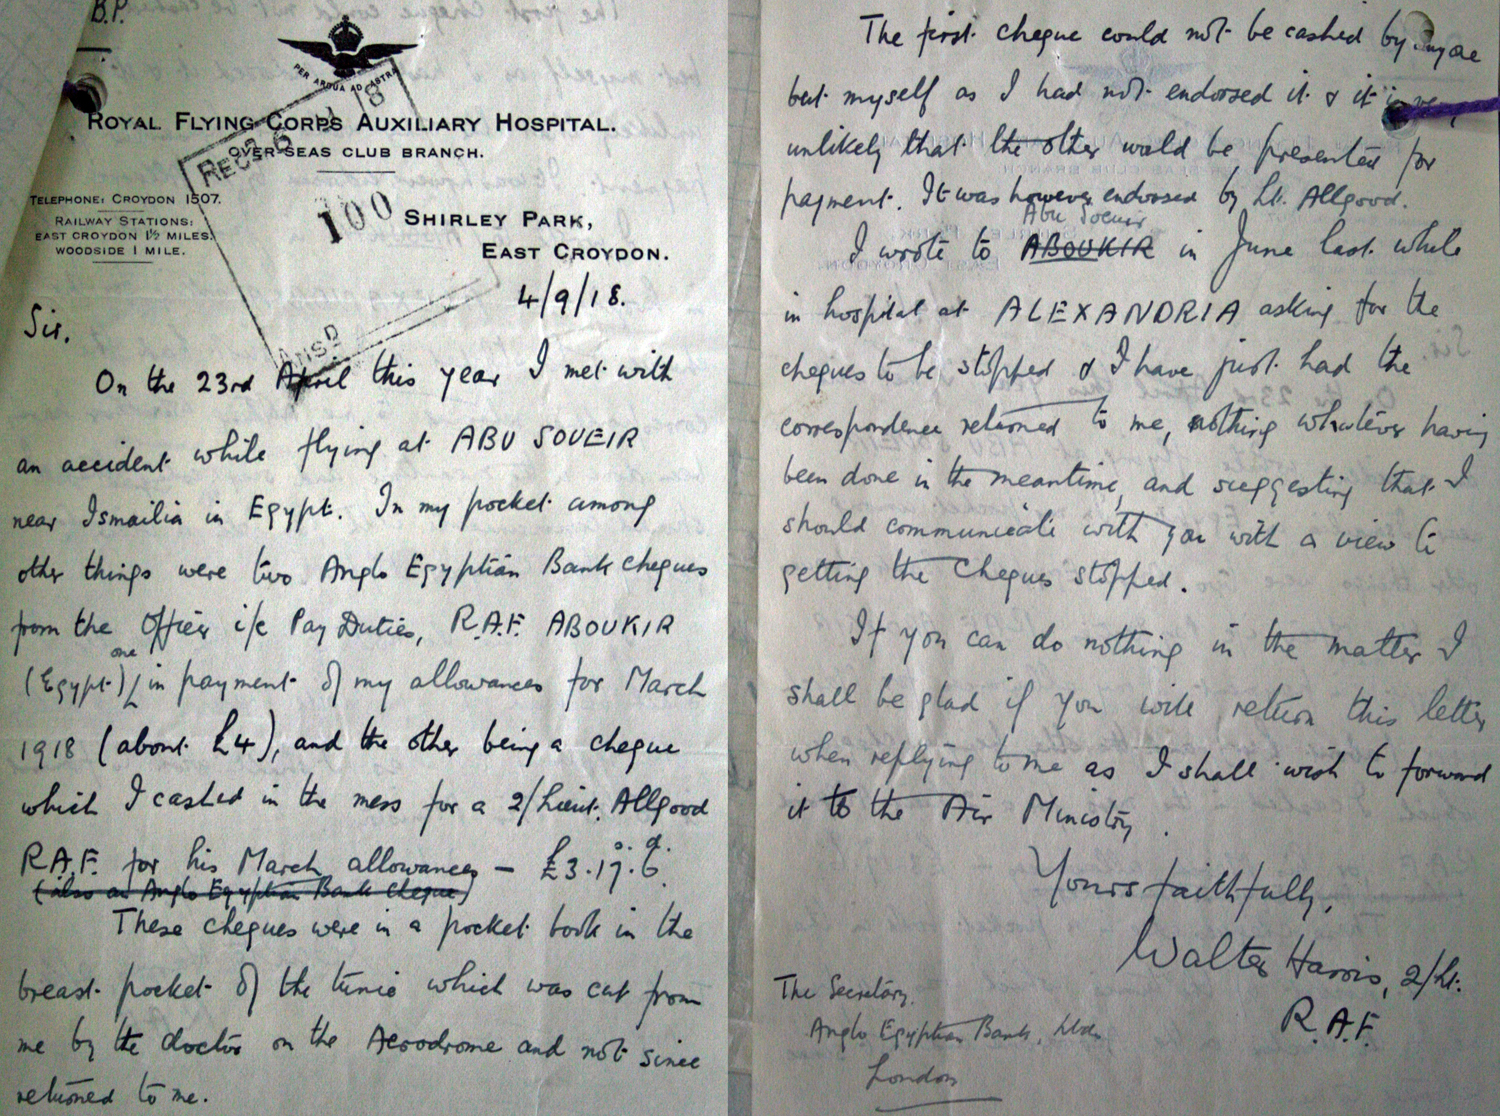 B.P.
PER ARDUA AD ASTRA
ROYAL FLYING CORPS AUXILIARY HOSPITAL.
OVER-SEAS CLUB BRANCH.
RECD 6 9 18
ANSD
TELEPHONE: CROYDON 1507.
RAILWAY STATIONS:
EAST CROYDON 1½ MILES.
WOODSIDE 1 MILE.
100
SHIRLEY PARK,
EAST CROYDON.
4/9/18.
Sir,
On the 23rd April this year I met with
an accident while flying at ABU SOUEIR
near Ismailia in Egypt. In my pocket among
other things were two Anglo Egyptian Bank cheques
from the Officer i/c Pay Duties, R.A.F. ABOUKIR
one
(Egypt), in payment of my allowances for March
1918 (about £4), and the other being a cheque
which I cashed in the mess for a 2/Lieut. Allgood
R.A.F. for his March allowances – £3.17.6.
(also an Anglo Egyptian Bank cheque)
These cheques were in a pocket book in the
breast pocket of the tunic which was cut from
me by the doctor on the Aerodrome and not since
returned to me.
The first cheque could not be cashed by anyone
but myself as I had not endorsed it & it is very
unlikely that the other would be presented for
payment. It was however endorsed by Lt. Allgood.
Abu Soueir
I wrote to ABOUKIR in June last while
in hospital at ALEXANDRIA asking for the
cheques to be stopped & I have just had the
correspondence returned to me, nothing whatever having
been done in the meantime, and suggesting that I
should communicate with you with a view to
getting the cheques stopped.
If you can do nothing in the matter I
shall be glad if you will return this letter
when replying to me as I shall wish to forward
it to the Air Ministry.
Yours faithfully,
Walter Harris, 2/Lt.
R.A.F.
The Secretary.
Anglo Egyptian Bank, Ltd.
London